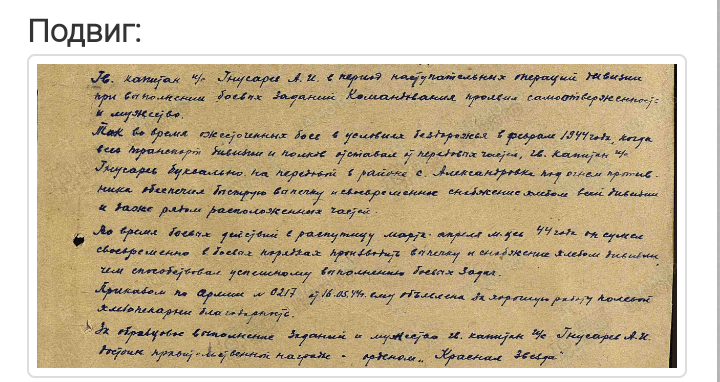 Подвиг:
Гв. капитан и/с Гнусарев А.И. в период наступательных операций дивизии
при выполнении боевых заданий Командования проявил самоотверженность
и мужество.
Так во время ожесточенных боев в условиях бездорожья в феврале 1944 года, когда
весь транспорт дивизии и полков отставал от передовых частей, гв. капитан и/с
Гнусарев буквально на передовой в районе с. Александровка под огнем против-
ника обеспечил быструю выпечку и своевременное снабжение хлебом всей дивизии
и даже рядом расположенных частей.
Во время боевых действий в распутицу марта-апреля м-цев 44 года он сумел
своевременно в боевых порядках производить выпечку и снабжение хлебом дивизии,
чем способствовал успешному выполнению боевых задач.
Приказом по Армии № 0217 от 16.05.44г. ему объявлена за хорошую работу полевой
хлебопекарни благодарность.
За образцовое выполнение заданий и мужество гв. капитан и/с Гнусарев А.И.
достоин правительственной награде - орденом „Красная Звезда"